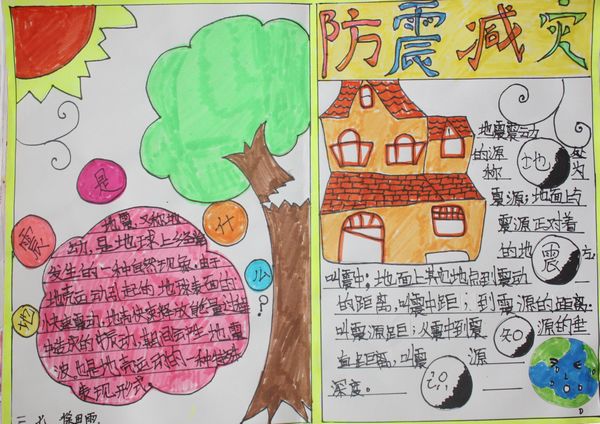 防震减灾
地
震
是
什
么
?
地震又称地
动,是地球上经常
发生的一种自然现象。由于
地壳运动引起的地球表面的
快速震动,地壳快速释放能量过程
中造成的振动,期间会产生地震
波,也是地壳运动的一种特殊
表现形式。
地震震动
的源 地 处
称 为
震源;地面与
震源正对着
的地 震 方,
叫震中;地面上其他地点到震动
的距离,叫震中距;到震源的距离
叫震源距;从震中到震 知 源的垂
直距离,叫震 源
深度。 识
三 七